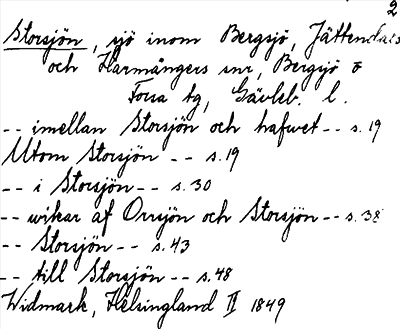 2
Storsjön, sjö inom Bergsjö, Jättendals
och Harmångers snr, Bergsjö o
Forsa tg, Gävleb. l.
-- imellan Storsjön och hafvet -- s. 19
Utom Storsjön -- s. 19
-- i Storsjön -- s. 30
-- wikar af Orrsjön och Storsjön -- s. 38
-- Storsjön -- s. 43
-- till Storsjön -- s. 48
Widmark, Helsingland II 1849